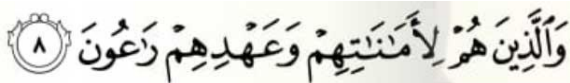 وَٱلَّذِينَ هُمۡ لِأَمَٰنَٰتِهِمۡ وَعَهۡدِهِمۡ رَٰعُونَ ٨